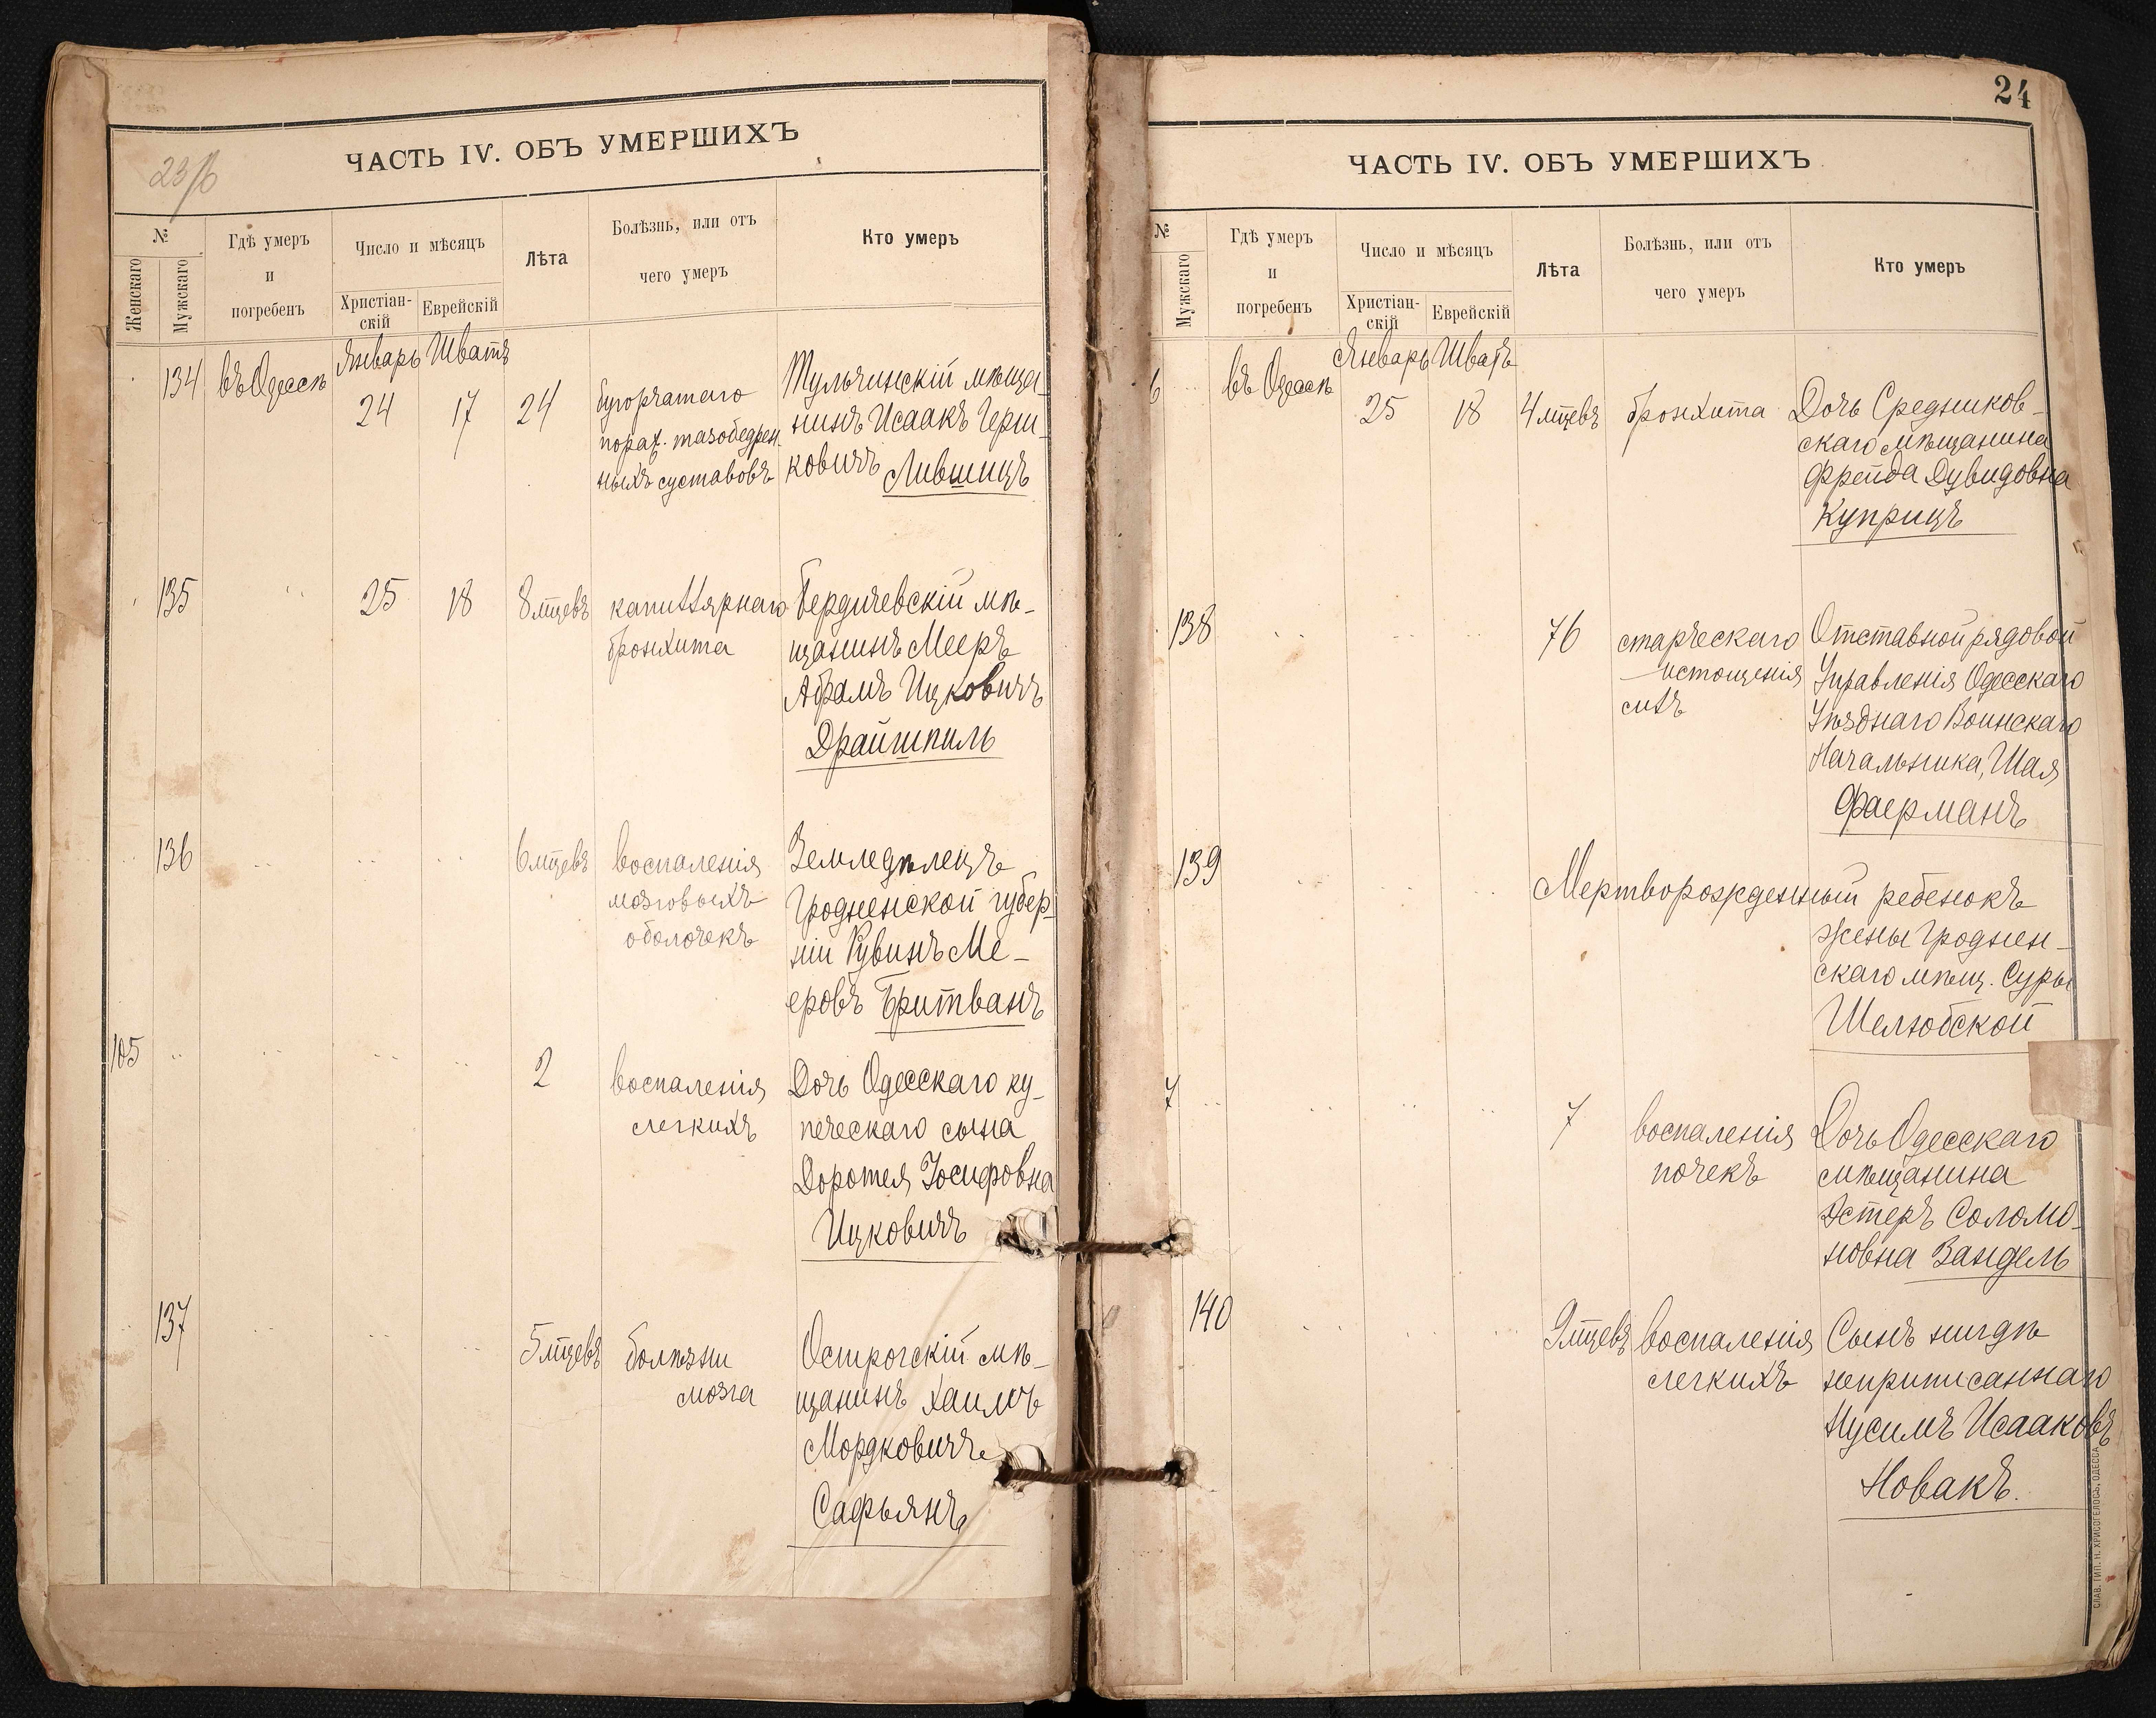 23/б
ЧАСТЬ IV. ОБЪ УМЕРШИХЪ
№
Женскаго
Мужскаго
Гдѣ умеръ
и
погребенъ
Число и мѣсяцъ
Христіан-
скій
Еврейскій
Лѣта
Болѣзнь, или отъ
чего умеръ
Кто умеръ
134
въ Одессѣ
Январь
Шватъ
24
17
24
бугорчатаго
пораж. тазобедрен-
ныхъ суставовъ
Тульчинскій мѣща-
нинъ Исаакъ Герш-
ковичъ Лившицъ
135
25
18
8 мцевъ
капиллярнаго
бронхита
Бердичевскій мѣ-
щанинъ Мееръ
Абрамъ Ицковичъ
Драйшпиль
136
6 мцевъ
воспаленія
мозговыхъ
оболочекъ
Земледѣлецъ
Гродненской губер-
ніи Рувинъ Ме-
еровъ Бритванъ
105
2
воспаленія
легкихъ
Дочь Одесскаго ку-
печескаго сына
Доротея Іосифовна
Ицковичъ
137
5 мцевъ
болѣзни
мозга
Острогскій мѣ-
щанинъ Хаимъ
Мордковичъ
Сафьянъ
24
ЧАСТЬ IV. ОБЪ УМЕРШИХЪ
№
Мужскаго
Гдѣ умеръ
и
погребенъ
Число и мѣсяцъ
Христіан-
скій
Еврейскій
Лѣта
Болѣзнь, или отъ
чего умеръ
Кто умеръ
6
въ Одессѣ
Январь
Шватъ
25
18
4 мцевъ
бронхита
Дочь Средников-
скаго мѣщанина
Фрейда Дувидовна
Куприцъ
138
76
старческаго
истощенія
силъ
Отставной рядовой
Управленія Одесскаго
Уѣзднаго Воинскаго
Начальника, Шая
Фаерманъ
139
Мертворожденный ребенокъ
жены Гроднен-
скаго мѣщ. Суры
Шелюбской
7
7
воспаленія
почекъ
Дочь Одесскаго
мѣщанина
Эстеръ Соломо-
новна Вандель
140
9 мцевъ
воспаленія
легкихъ
Сынъ нигдѣ
неприписаннаго
Нусимъ Исааковъ
Новакъ.
СЛАВ. ТИП. Н. ХРИСОГЕЛОСЪ, ОДЕССА